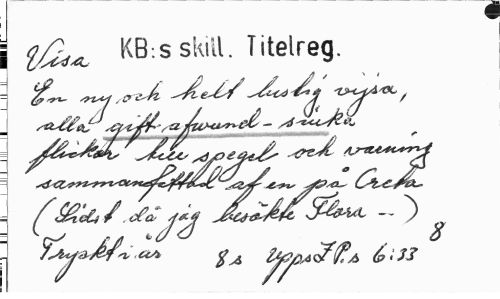 KB:s skill. Titelreg.
Visa
En ny och helt lustig vijsa,
alla gift-afwund-siuka
flickor till spegel och varning
sammanfattad af en på Creta
(Sidst då jag besökte Flora --)
Tryskt i år 8s Upps Z P.s 6:33
8